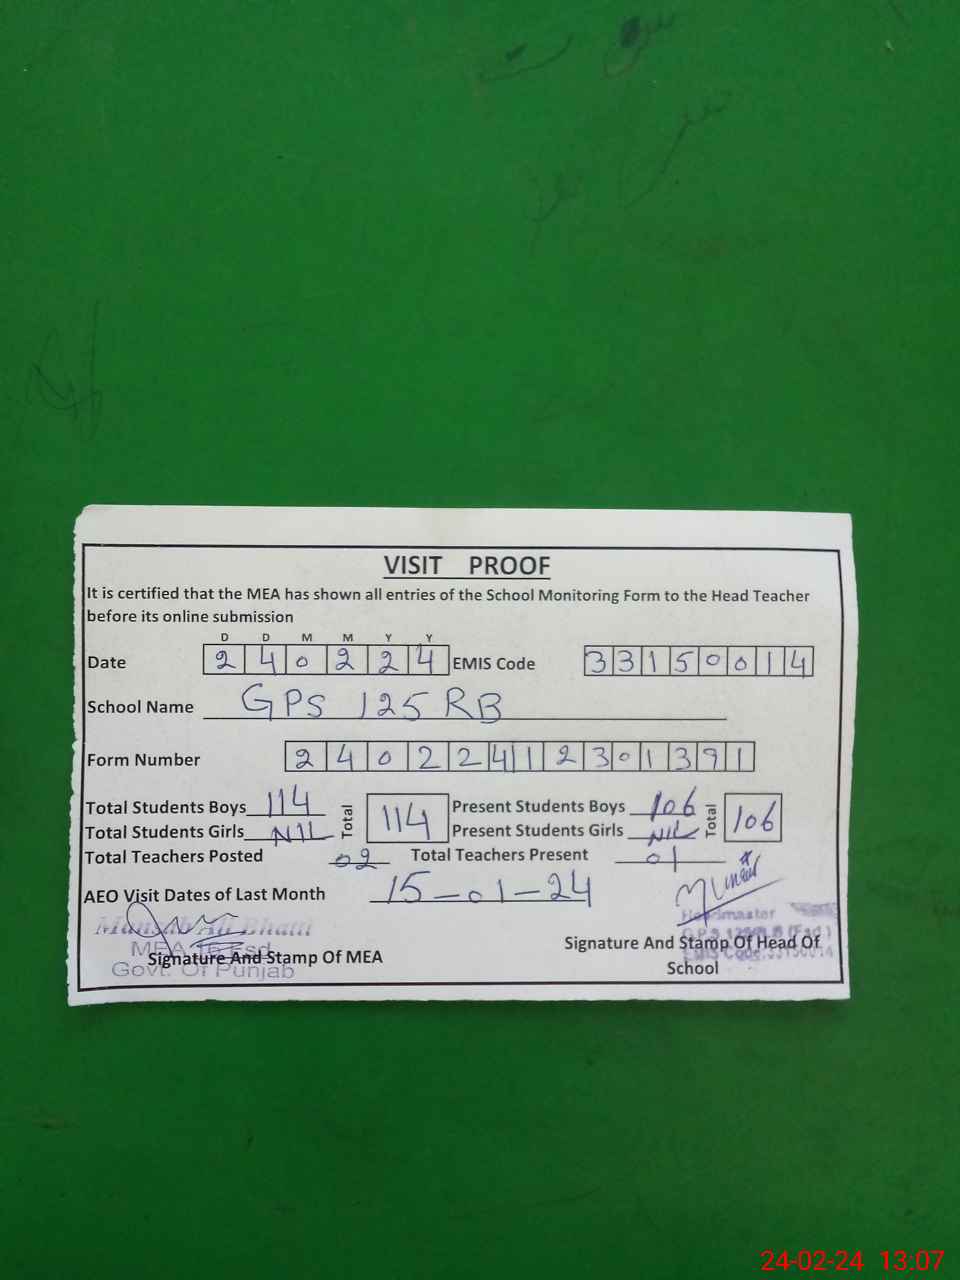 VISIT PROOF
It is certified that the MEA has shown all entries of the School Monitoring Form to the Head Teacher
before its online submission
D D M M Y Y
Date 240224 EMIS Code 33150014
School Name GPS 125 RB
Form Number 24022412301391
Total Students Boys 114 Total 114 Present Students Boys 106 Total 106
Total Students Girls NIL Present Students Girls NIL
Total Teachers Posted 02 Total Teachers Present 01
AEO Visit Dates of Last Month 15-01-24
Mansab Ali Bhatti
MEA 16 Fsd
Govt. Of Punjab
Signature And Stamp Of MEA
Headmaster
G.P.S 125 R.B (Fsd)
EMIS Code:33150014
Signature And Stamp Of Head Of
School
24-02-24 13:07